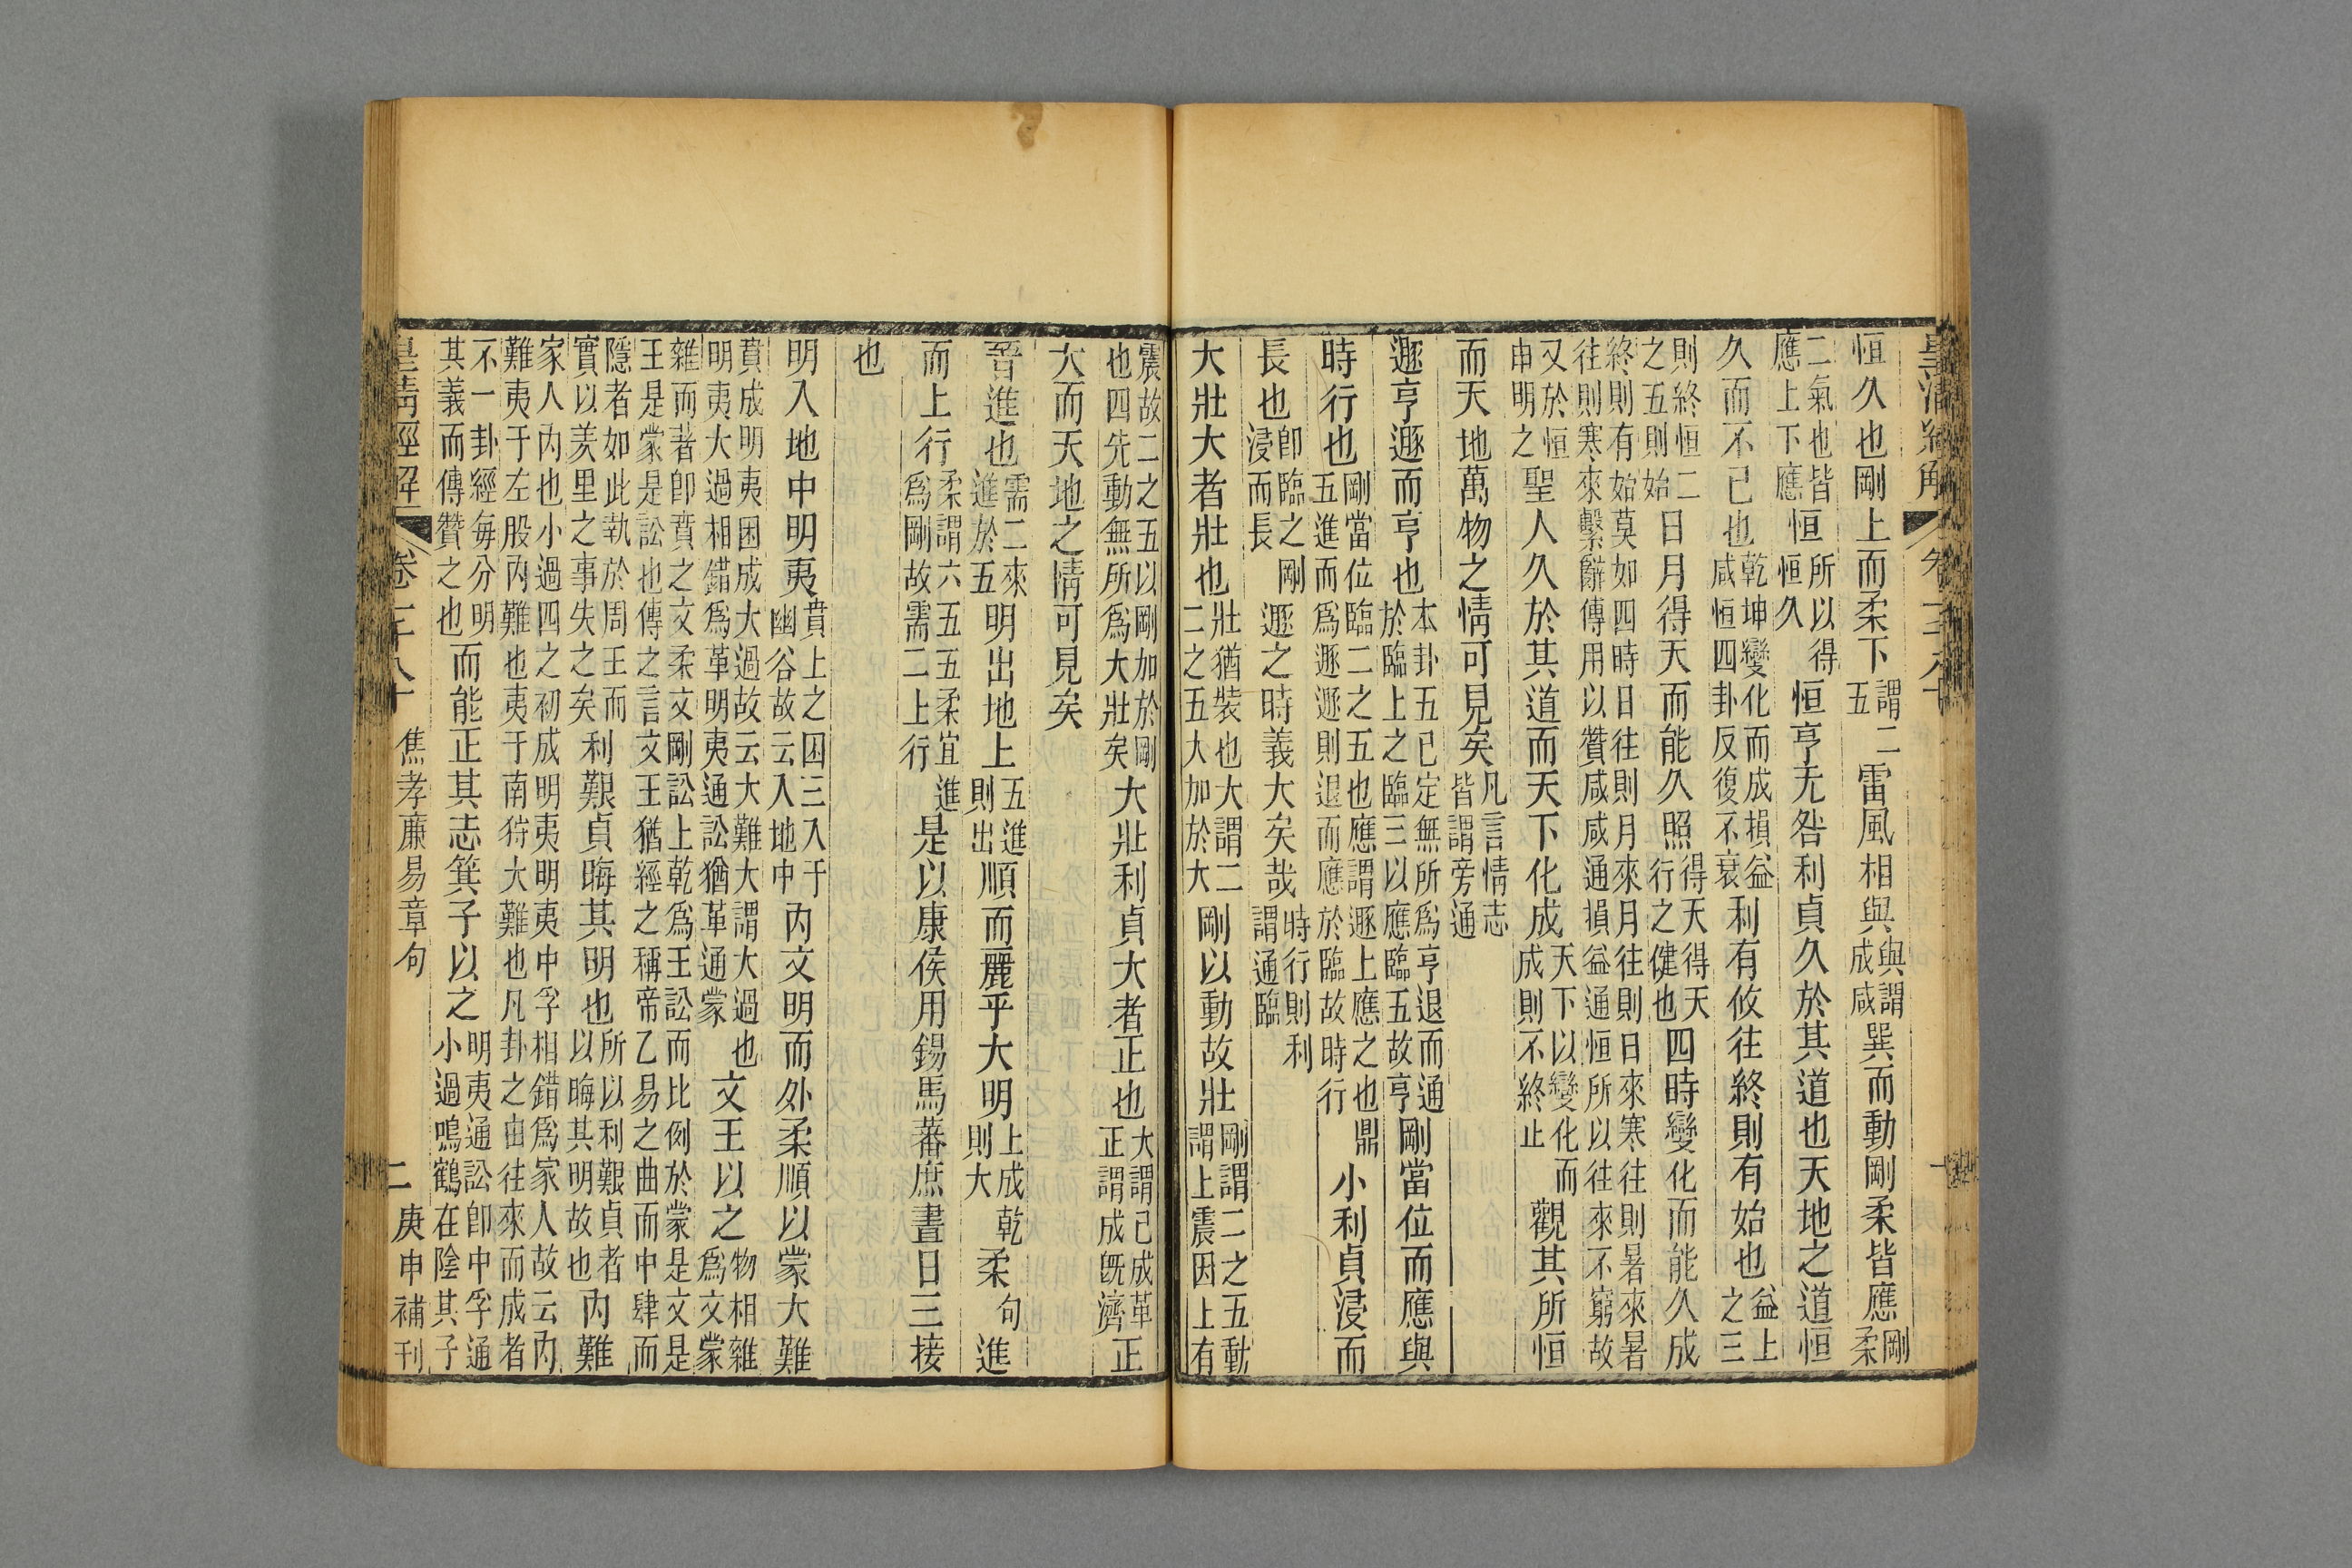 恒久也剛上而柔下謂二五雷風相與與謂成咸巽而動剛柔皆應剛柔
二氣也皆應上下應恒所以得恒久恒亨无咎利貞久於其道也天地之道恒
久而不已也乾坤變化而成損益咸恒四卦反復不衰利有攸往終則有始也益上之三
則終恒二之五則始日月得天而能久照得天得天行之健也四時變化而能久成
終則有始莫如四時日往則月來月往則日來寒往則暑來暑往則寒來繫辭傳用以贊咸咸通損益通恒所以往來不窮故
又於恒申明之聖人久於其道而天下化成天下以變化而成則不終止觀其所恒
而天地萬物之情可見矣凡言情志皆謂旁通
遯亨遯而亨也本卦五已定無所爲亨退而通於臨上之臨三以應臨五故亨剛當位而應與
時行也剛當位臨二之五也應謂遯上應之也鼎五進而爲遯遯則退而應於臨故時行小利貞浸而
長也卽臨之剛浸而長遯之時義大矣哉時行則利謂通臨
大壯大者壯也壯猶裝也大謂二二之五大加於大剛以動故壯剛謂二之五動謂上震因上有
震故二之五以剛加於剛也四先動無所爲大壯矣大壯利貞大者正也大謂已成革正謂成旣濟正
大而天地之情可見矣
晉進也需二來進於五明出地上五進則出順而麗乎大明上成乾則大柔句進
而上行柔謂六五五柔宜進爲剛故需二上行是以康侯用錫馬蕃庶晝日三接
也
明入地中明夷賁上之困三入于幽谷故云入地中內文明而外柔順以蒙大難
賁成明夷困成大過故云大難大謂大過也明夷大過相錯爲革明夷通訟猶革通蒙文王以之物相雜爲文蒙
雜而著卽賁之文柔文剛訟上乾爲王訟而比例於蒙是文是王是蒙是訟也傳之言文王猶經之稱帝乙易之曲而中肆而
隱者如此執於周王而實以羑里之事失之矣利艱貞晦其明也所以利艱貞者以晦其明故也內難
家人內也小過四之初成明夷明夷中孚相錯爲家人故云內難夷于左股內難也夷于南狩大難也凡卦之由往來而成者
不一卦經每分明其義而傳贊之也而能正其志箕子以之明夷通訟卽中孚通小過鳴鶴在陰其子
皇清經解 卷 焦孝廉易章句 二 庚申補刊